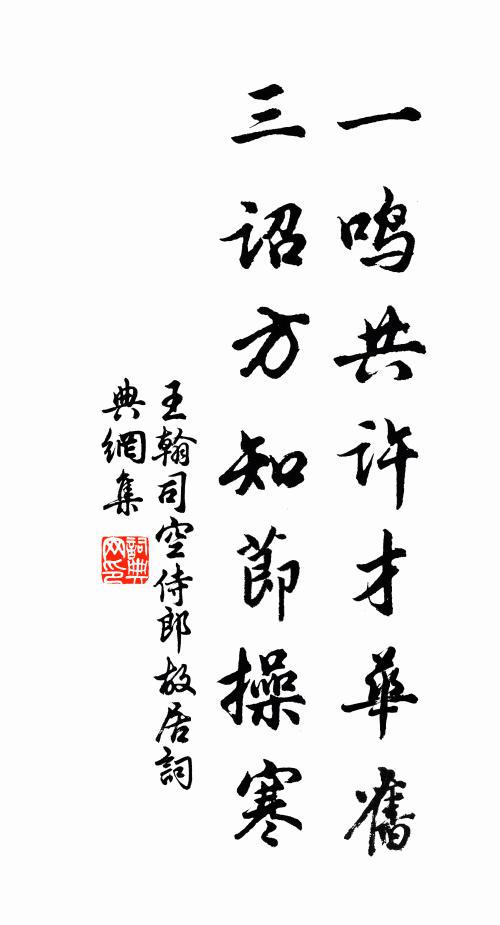 一鸣共许才華舊
三诏方知節操寒
王翰司空侍郎故居詞
典網集
詞典
网印